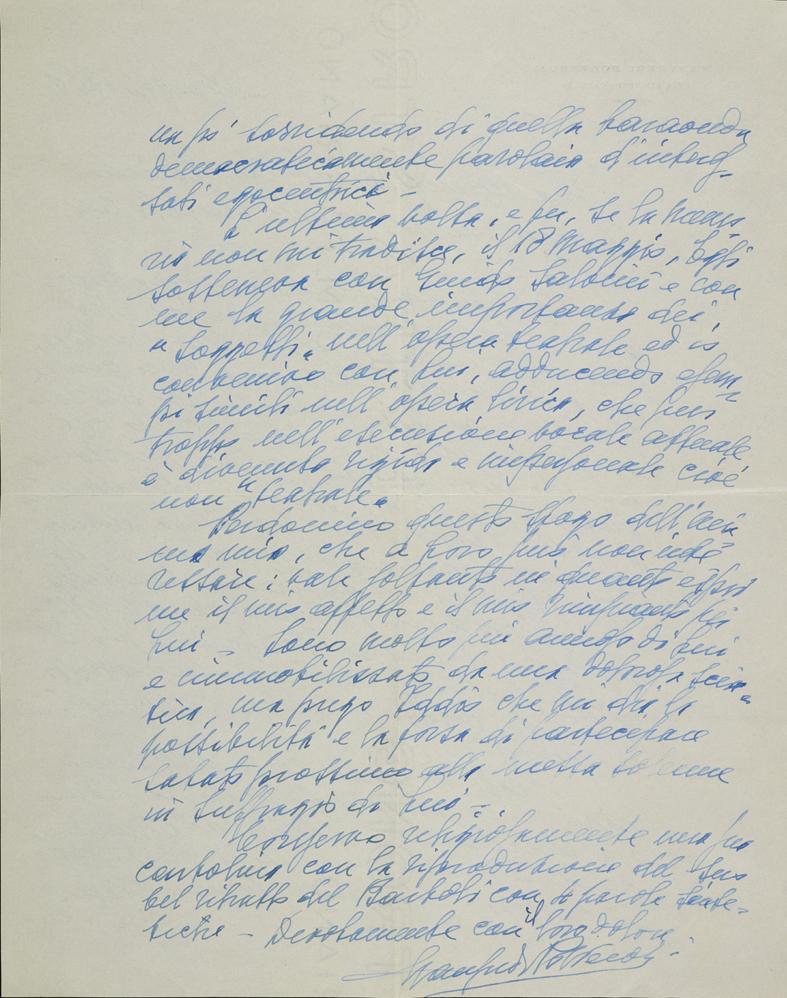 un po' sorridendo di quella baraonda
democraticamente parolaia d'interes-
sati egocentrici -
L'ultima volta, e fu, se la memo-
ria non mi tradisce, il 18 maggio, Egli
sosteneva con Guido Salvini e con
me la grande importanza dei
"Soggetti" nell'opera teatrale ed io
convenivo con Lui, adducendo esem-
pi simili nell'opera lirica, che pur
troppo nell'esecuzione vocale attuale
è divenuta rigida e impersonale cioè
non "teatrale"
Perdonino questo sfogo dell'ani
ma mia, che a loro può non inte-
ressare: vale soltanto in quanto espri
me il mio affetto e il mio rimpianto per
Lui - Sono molto più anziano di Lui
e immobilizzato da una dolorosa scia-
tica, ma prego Iddio che mi dia la
possibilità e la forza di partecipare
sabato prossimo alla messa solenne
in suffragio di Lui -
Conservo religiosamente una sua
cartolina con la riproduzione del Suo
bel ritratto del Bartoli con 4 parole sinte-
tiche - Devotamente con il loro dolore